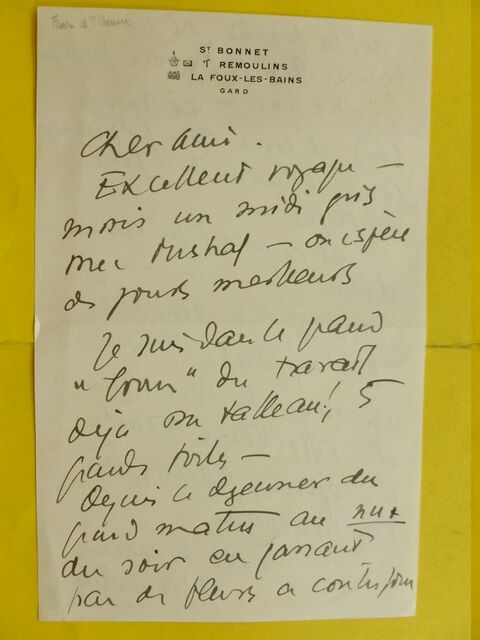 St BONNET
REMOULINS
LA FOUX-LES-BAINS
GARD
Cher Ami.
Excellent voyage —
mais un midi gris
avec Mistral — on espère
des jours meilleurs
Je suis dans le grand
du travail
déjà au tableau! 5
grandes toiles —
depuis le déjeuner du
grand matin au nu
du soir en passant
par des fleurs a contre jour